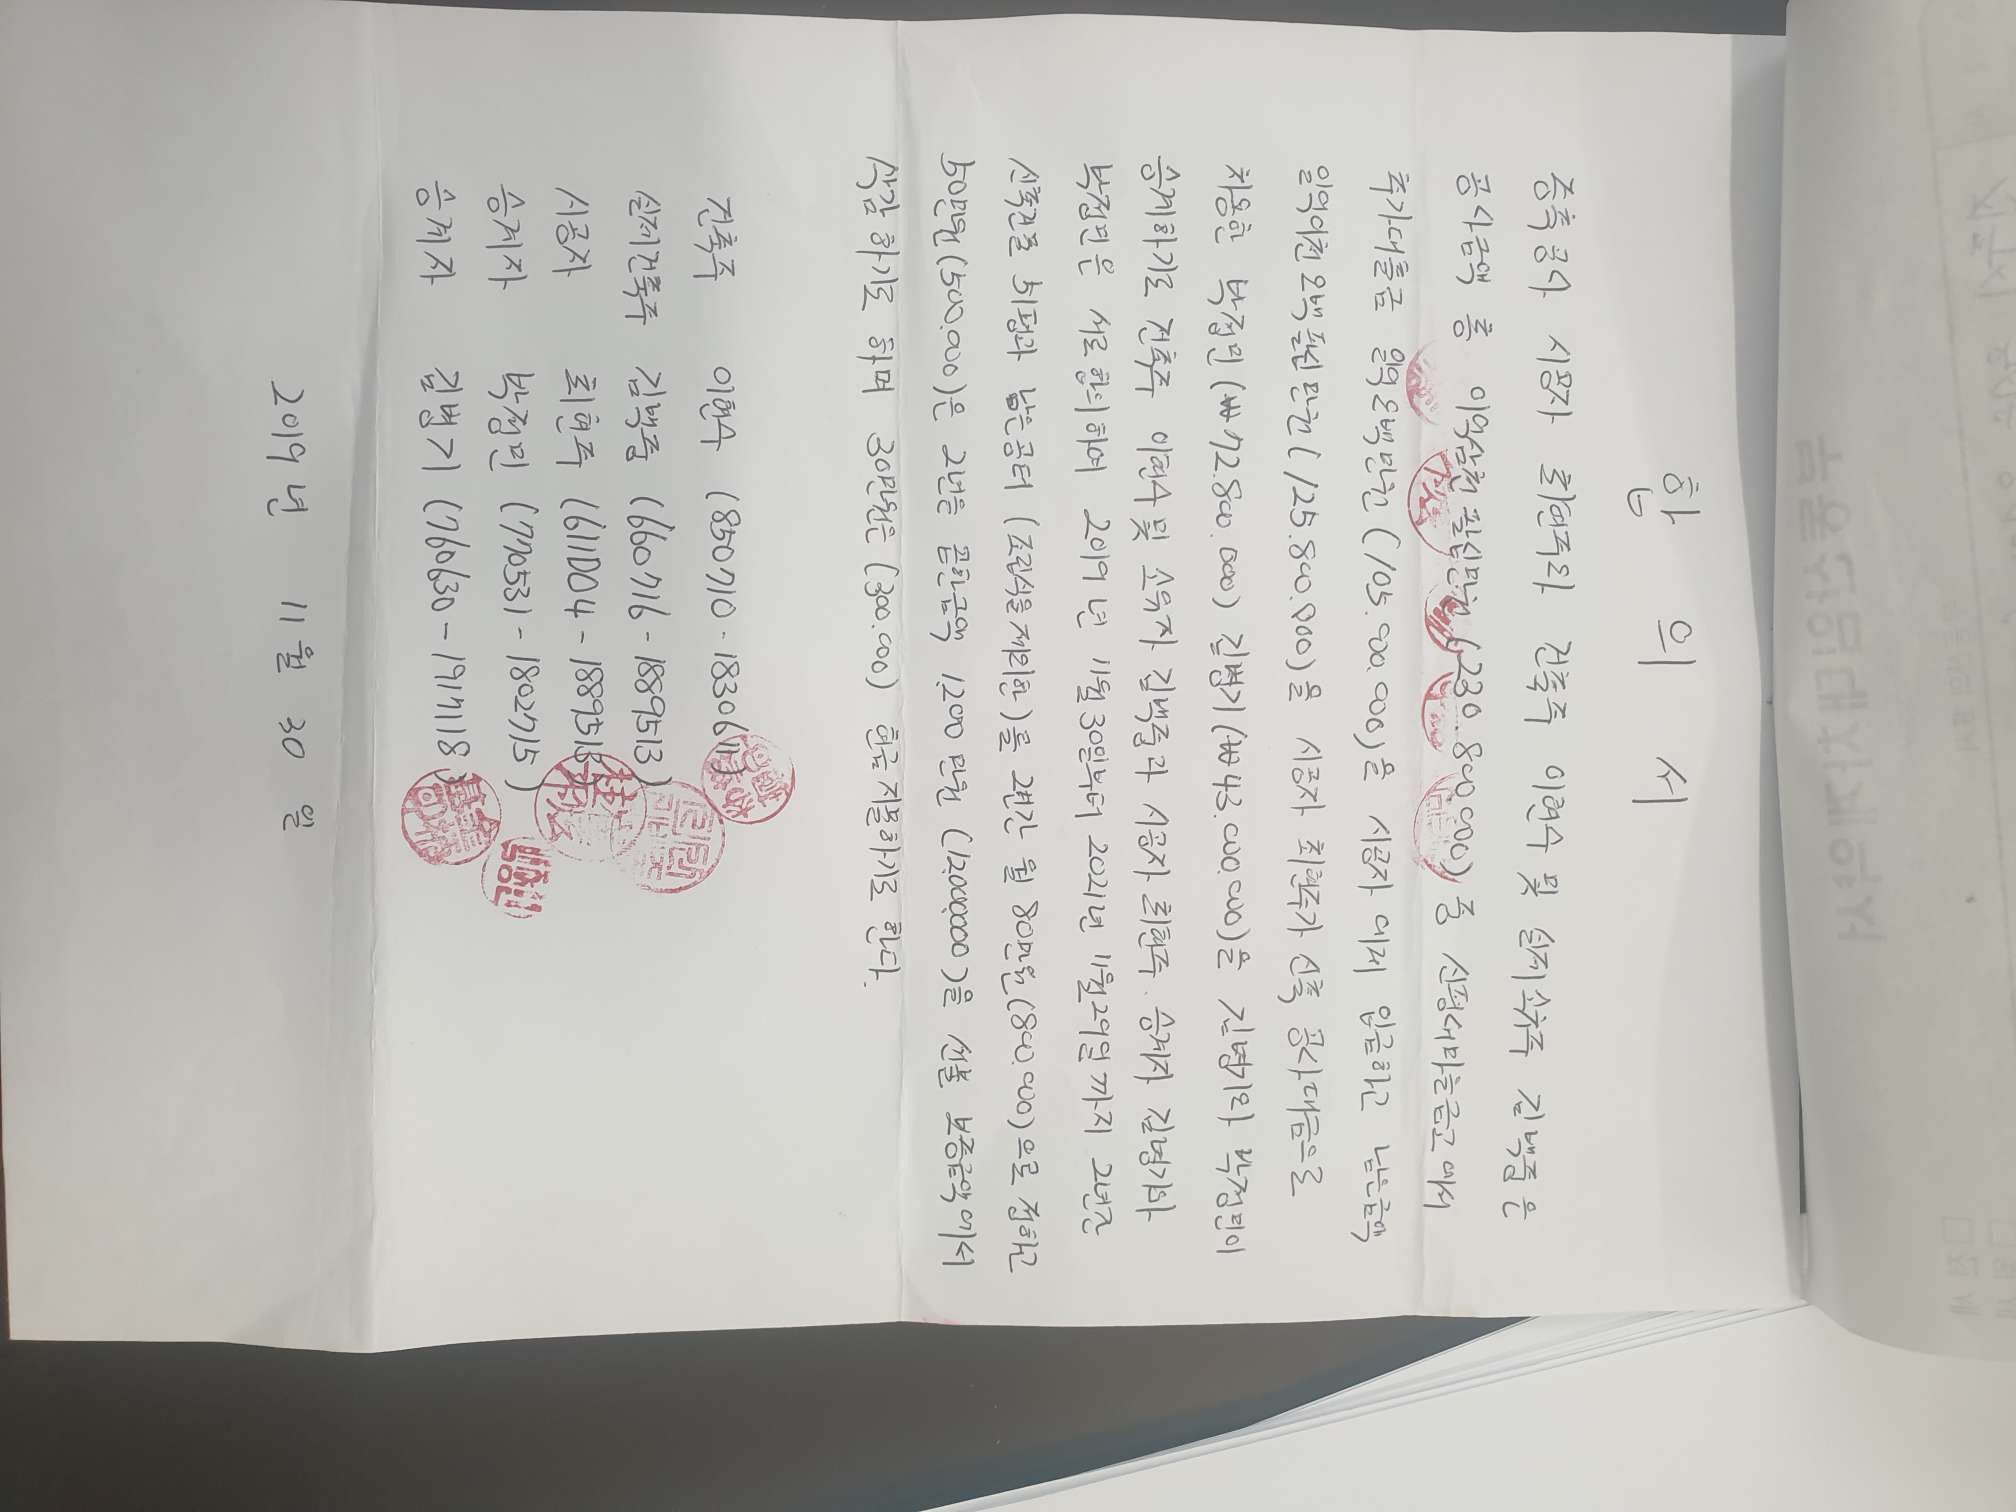 합 의 서
증축공사 시공자 최현주의 건축주 이현수 및 실제건축주 김백중은
공사금액 총 이억삼천팔십만원 (230.800.000) 중 신평새마을금고에서
추가대출금 일억오백만원 (105.000.000)을 시공자에게 입금하고 남은금액
일억이천오백팔십만원 (125.800.000)을 시공자 최현주가 신축 공사대금으로
차용한 박정민 (₩72.800.000) 김병기 (₩43.000.000)을 김병기와 박정민이
승계하기로 건축주 이현수 및 소유자 김백중과 시공자 최현주. 승계자 김병기와
박정민은 서로 합의하여 2019년 11월 30일부터 2021년 11월 29일까지 2년간
신축건물 51평과 남은공터 (표고식을제외한)를 2년간 월 80만원 (800.000)으로 정하고
50만원 (500.000)은 2년을 곱한금액 1,200만원 (12,000,000)을 선불 보증금액에서
삭감하기로 하며 30만원은 (300.000) 현금지불하기로 한다.
건축주 이현수 (850710-18306
실제건축주 김백중 (660716-1889513)
시공자 최현주 (611004-1889513)
승계자 박정민 (770531-1802715)
승계자 김병기 (760630-1917118)
2019년 11월 30일